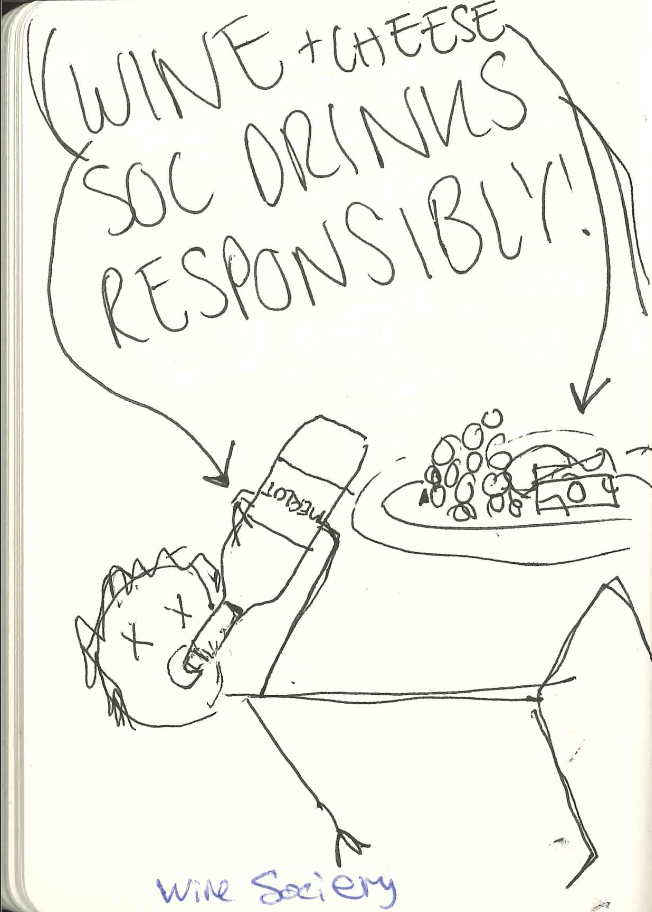 WINE + CHEESE
SOC DRINKS
RESPONSIBLY!
MERLOT
Wine Society